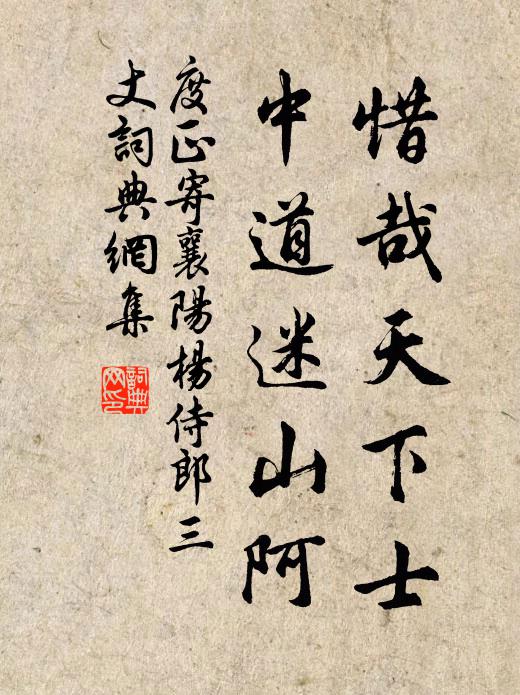 惜哉天下士
中道迷山阿
度正寄襄陽楊侍郎三
丈詞典網集
詞典
网印